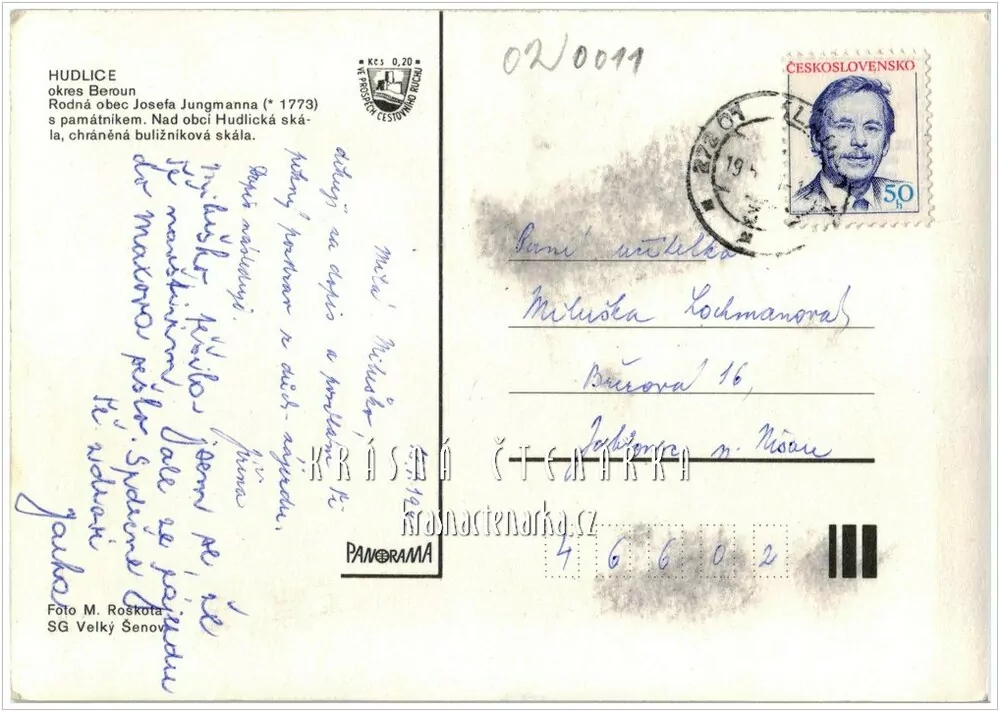 HUDLICE
okres Beroun
Rodná obec Josefa Jungmanna (* 1773)
s památníkem. Nad obcí Hudlická ská-
la, chráněná buližníková skála.
Kčs 0,20
VE PROSPĚCH CESTOVNÍHO RUCHU
02/0011
ČESKOSLOVENSKO
50
h
272 01
19
Milá Miluško,
děkuji za dopis a posílám Ti
pěkný pozdrav z důch. zájezdu.
Dopis následuje.
Jiřina
Miluško těšila jsem se, že
Tě navštívím, ale ze zájezdu
do Maxova sešlo. Srdečně
Tě zdraví
Jarka
Paní učitelka
Miluška Lochmanová
Březová 16,
Jablonec n. Nisou
46602
KRÁSNÁ ČTENÁRKA
krasnactenarka.cz
PANORAMA
Foto M. Roškota
SG Velký Šenov